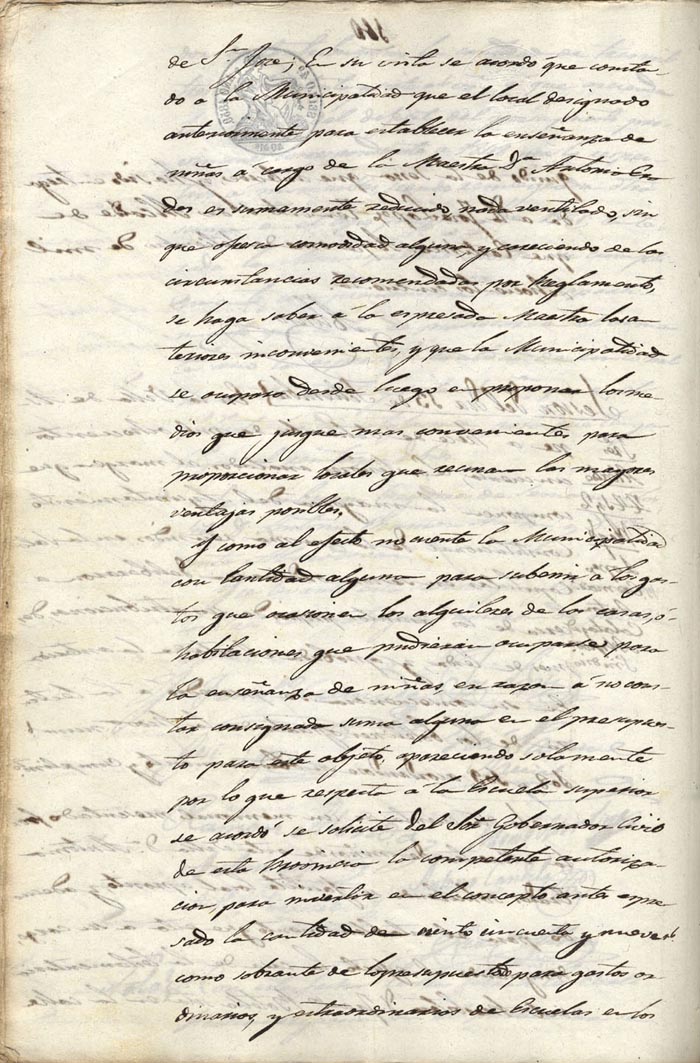 de Sn Jose; En su vista se acordó que constan
do a la Municipalidad que el local designado
anteriormente para establecer la enseñanza de
niñas a cargo de la Maestra Da Antonia
es sumamente reducido, nada ventilado, sin
que ofresca comodidad alguna, y careciendo de las
circunstancias recomendadas por Reglamento,
se haga saber a la espresada Maestra los an
teriores inconvenientes, y que la Municipalidad
se ocupara desde luego en proponer los me
dios que jusgue mas convenientes para
proporcionar locales que reunan las mayores
ventajas posibles.
Y como al efecto no cuente la Municipalidad
con Cantidad alguna para subenir a los gas
tos que ocasionen los alquileres de las casas, ó
habitaciones que pudieran ocuparse para
la enseñanza de niñas, en razon a no cons
tar consignada suma alguna en el presupues
to para este objeto, apareciendo solamente
por lo que respecta á la Escuela superior
se acordó se solicite del Sor Gobernador Civil
de esta Provincia la competente autoriza
cion para invertir en el concepto antes espre
sado la cantidad de ciento cincuenta y nueve
como sobrante de lo presupuestado para gastos or
dinarios, y extraordinarios de Escuelas en los